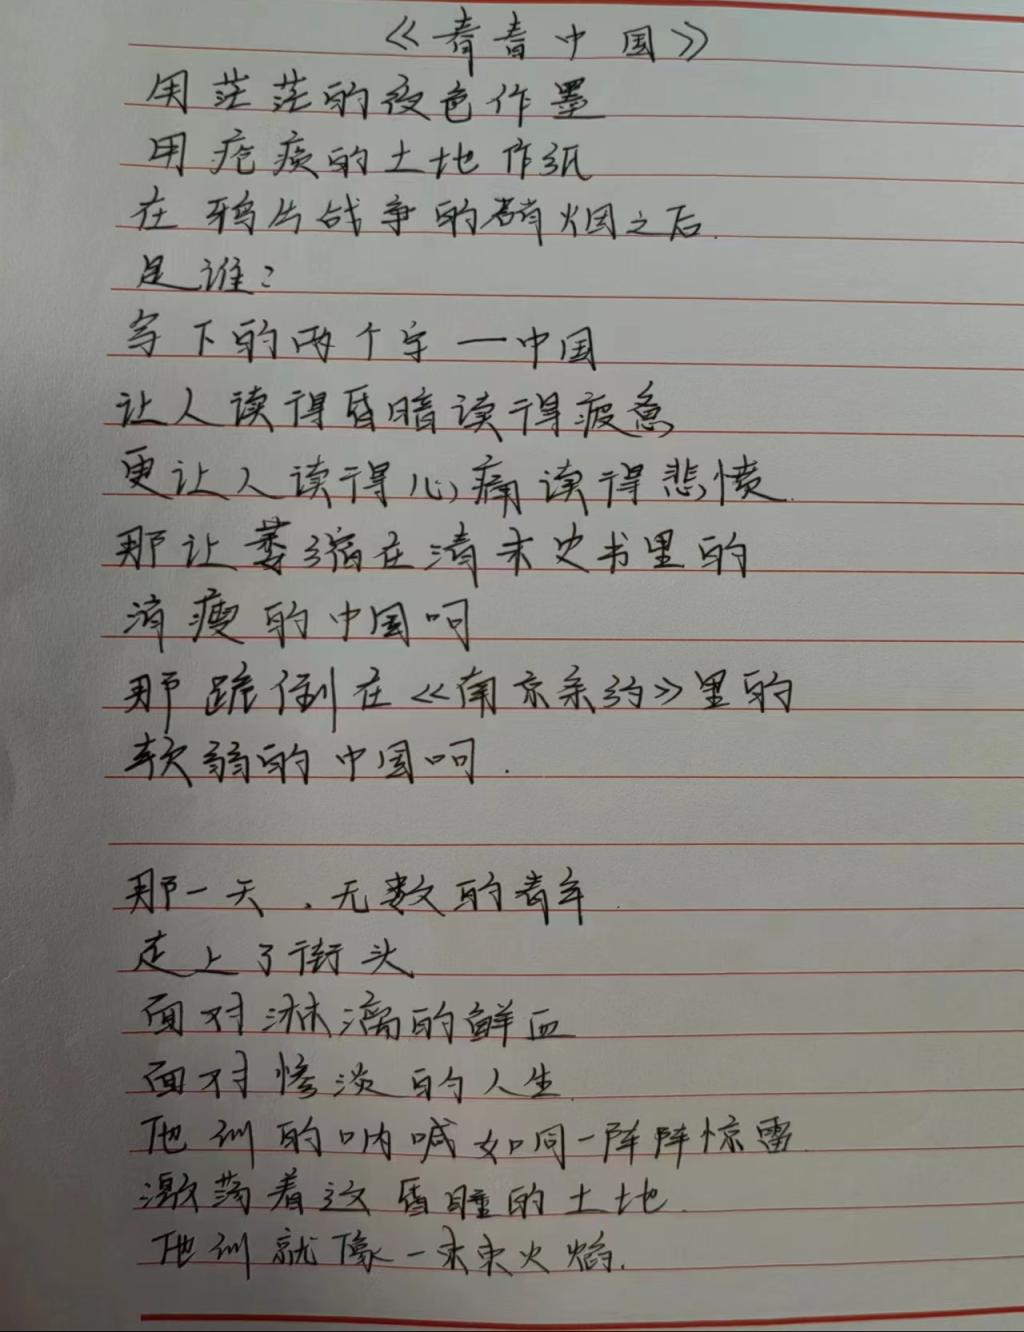 《青春中国》
用茫茫的夜色作墨
用疮痍的土地作纸
在鸦片战争的硝烟之后.
是谁?
写下的两个字一中国
让人读得昏暗读得疲惫
更让人读得心痛读得悲愤.
那让萎缩在清末史书里的
消瘦的中国呵
那跪倒在《南京条约》里的
软弱的中国呵.
那一天，无数的青年.
走上了街头
面对淋漓的鲜血
面对惨淡的人生.
他们的呐喊如同一阵阵惊雷.
激荡着这昏睡的土地.
他们就像一束束火焰.